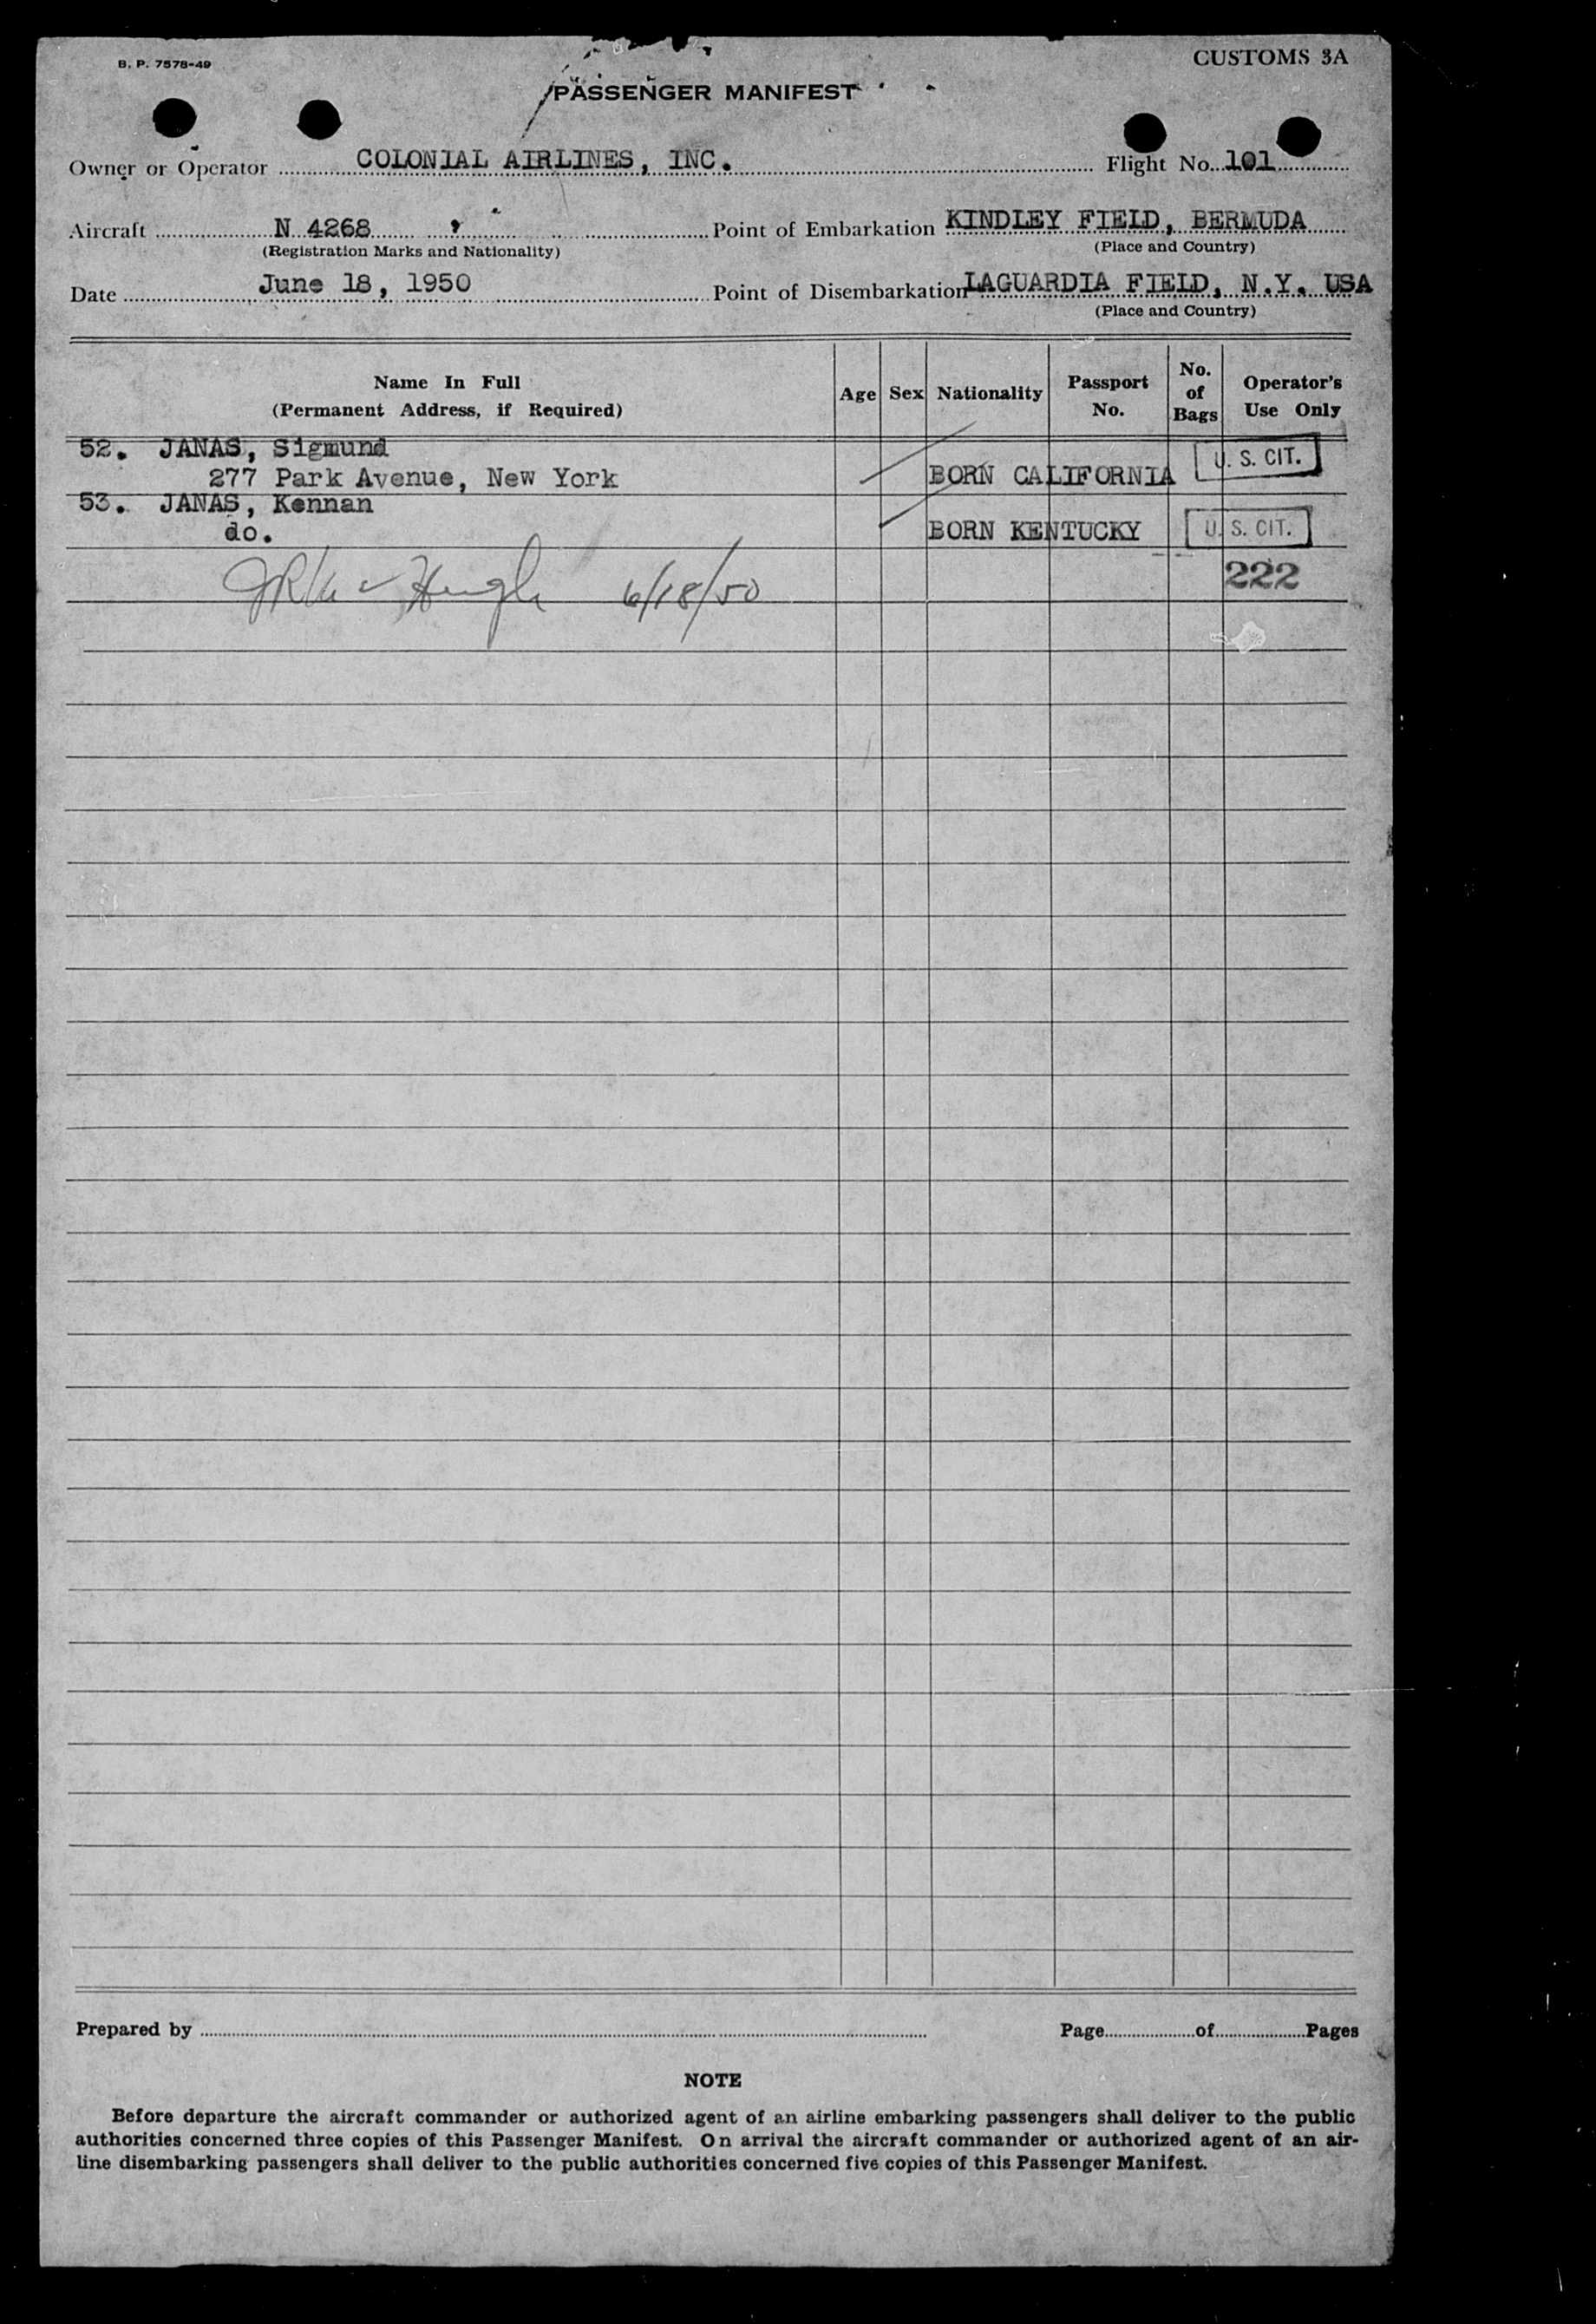 B. P. 7578-49
CUSTOMS 3A
PASSENGER MANIFEST
Owner or Operator COLONIAL AIRLINES, INC. Flight No. 101
Aircraft N 4268 Point of Embarkation KINDLEY FIELD, BERMUDA
(Registration Marks and Nationality) (Place and Country)
Date June 18, 1950 Point of Disembarkation LAGUARDIA FIELD, N.Y. USA
(Place and Country)
Name In Full (Permanent Address, if Required) Age Sex Nationality Passport No. No. of Bags Operator's Use Only
52. JANAS, Sigmund
277 Park Avenue, New York BORN CALIFORNIA U. S. CIT.
53. JANAS, Kennan
do. BORN KENTUCKY U. S. CIT.
6/18/50 222
Prepared by Page of Pages
NOTE
Before departure the aircraft commander or authorized agent of an airline embarking passengers shall deliver to the public
authorities concerned three copies of this Passenger Manifest. On arrival the aircraft commander or authorized agent of an air-
line disembarking passengers shall deliver to the public authorities concerned five copies of this Passenger Manifest.